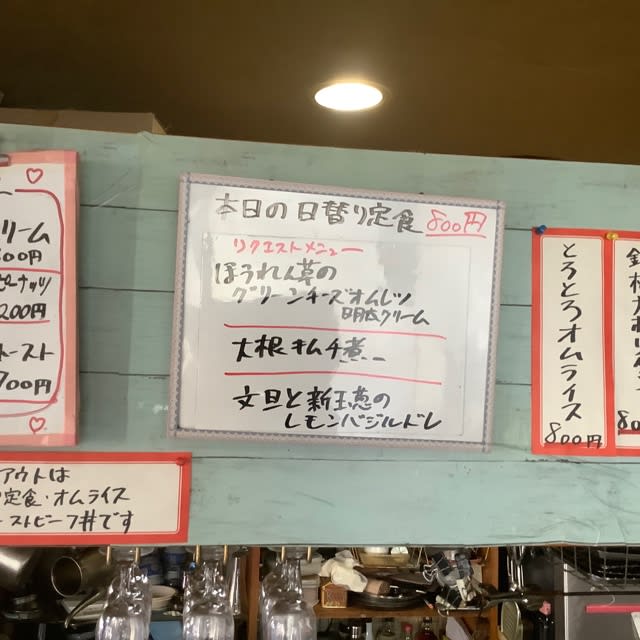 本日の日替り定食 800円
リクエストメニュー
ほうれん草の
グリーンチーズオムレツ
明太クリーム
大根キムチ煮
文旦と新玉葱の
レモンバジルドレ
リーム
00円
ピーナッツ
200円
トースト
700円
アウトは
定食・オムライス
ーストビーフ丼です
とろとろオムライス
800円